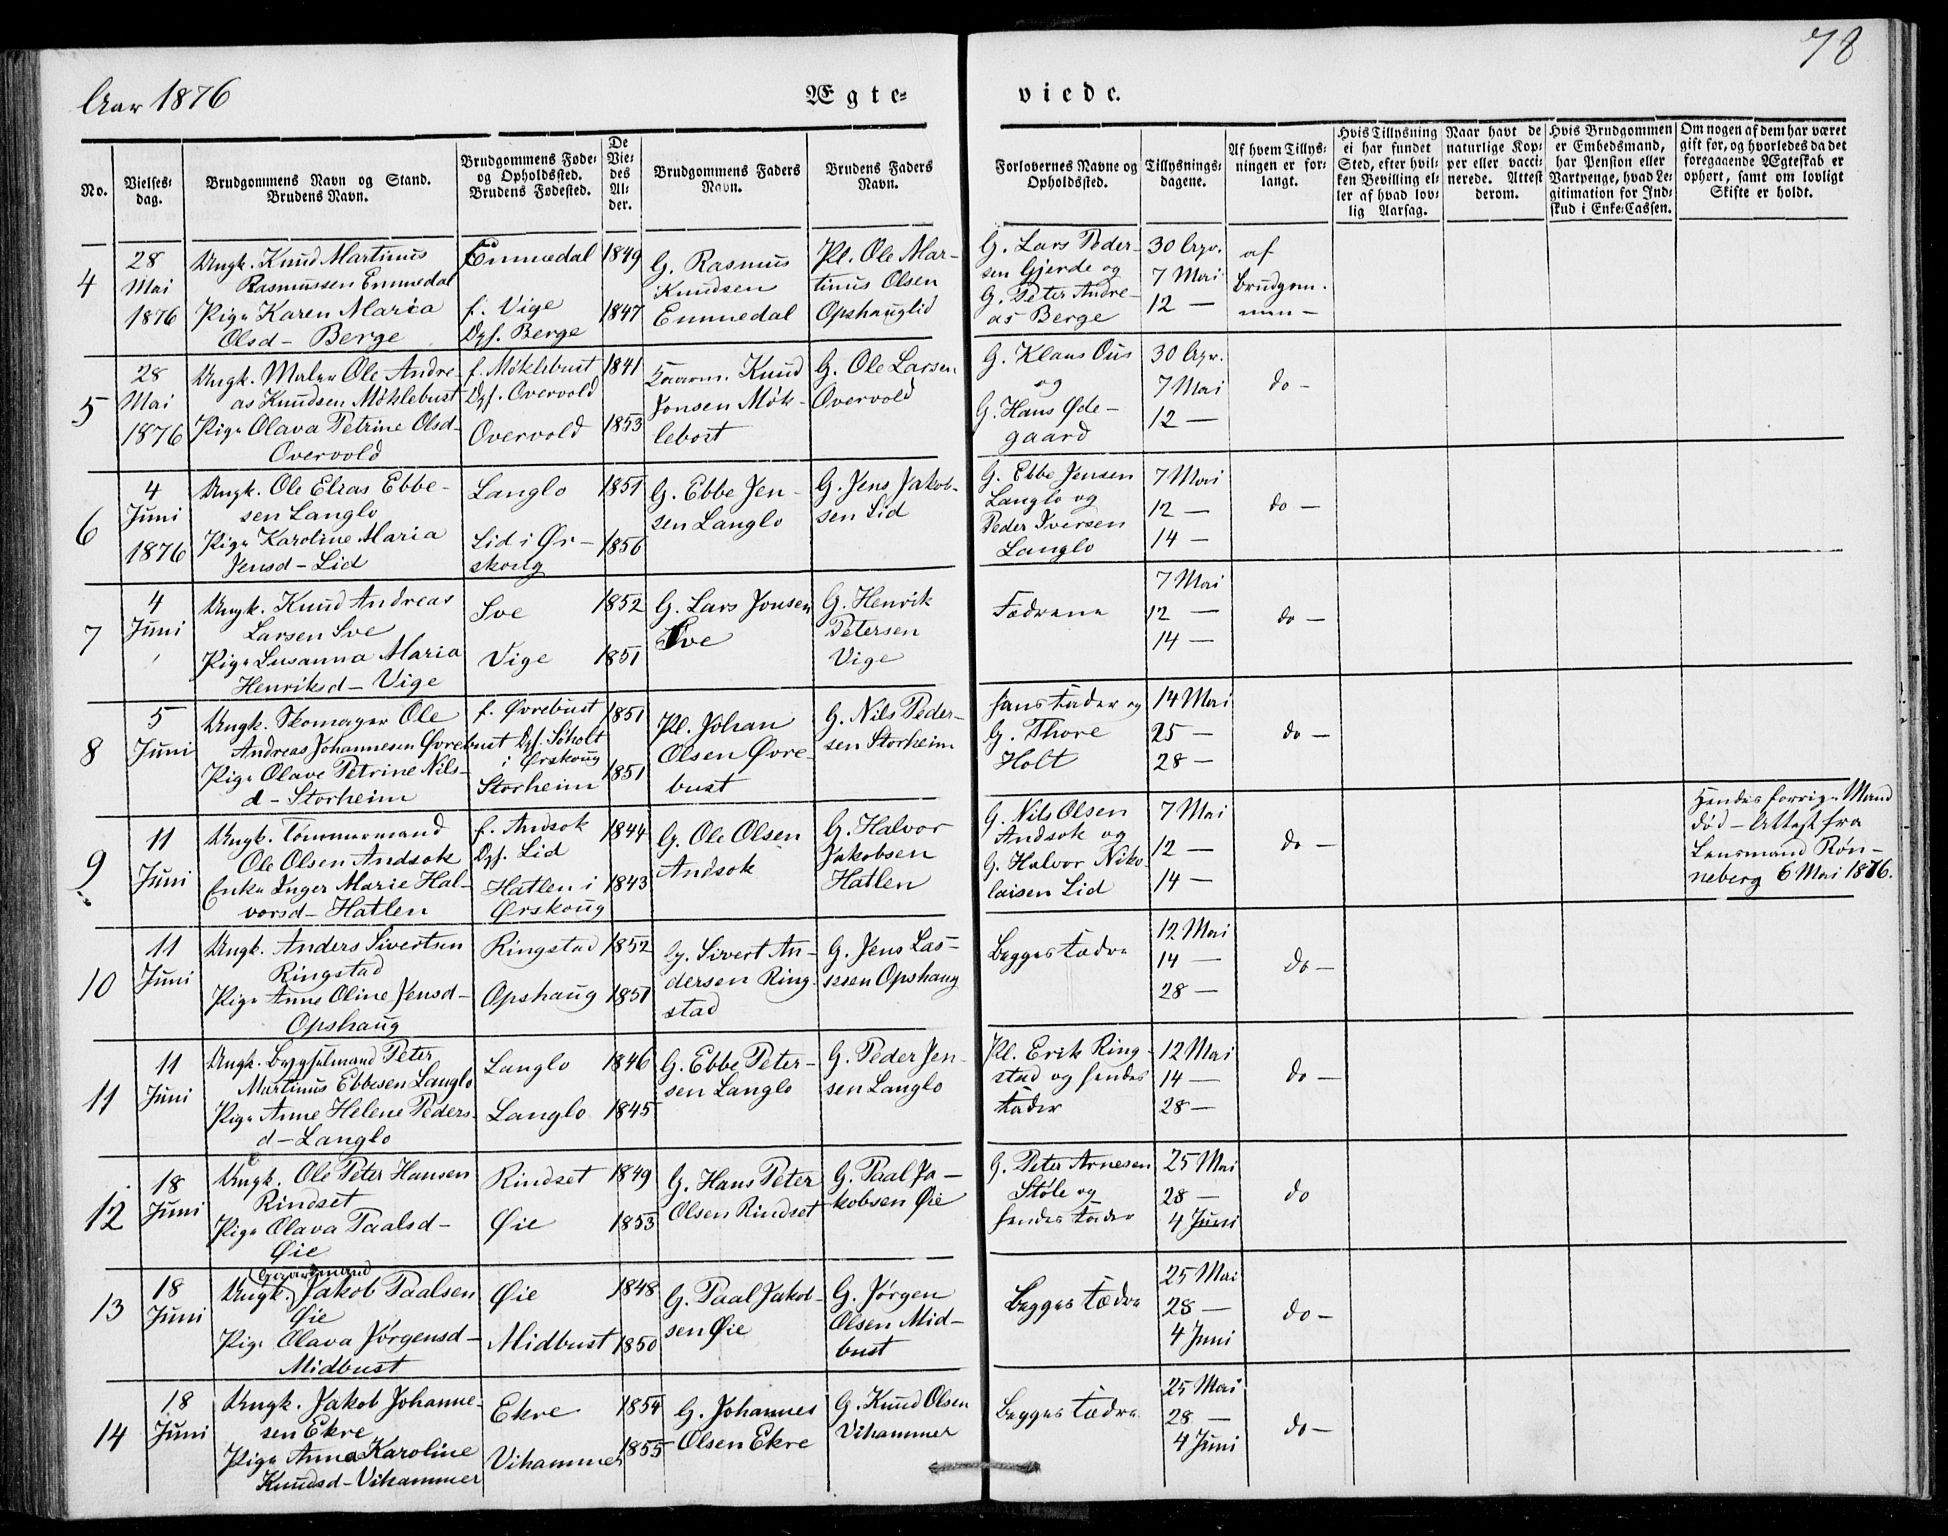 78
Aar 1876
Ægte-
viede.
No.
Vielses-
dag.
Brudgommens Navn og Stand.
Brudens Navn.
Brudgommens Føde-
og Opholdssted.
Brudens Fødested.
De
Vie-
des
Al-
der.
Brudgommens Faders
Navn.
Brudens Faders
Navn.
Forlovernes Navne og
Opholdssted.
Tillysnings-
dagene.
Af hvem Tillys-
ningen er for-
langt.
Hvis Tillysning
ei har fundet
Sted, efter hvil-
ken Bevilling el-
ler af hvad lov-
lig Aarsag.
Naar havt de
naturlige Kop-
per eller vacci-
nerede. Attest
derom.
Hvis Brudgommen
er Embedsmand,
har Pension eller
Vartpenge, hvad Le-
gitimation for Ind-
skud i Enke-Cassen.
Om nogen af dem har været
gift for, og hvorledes da det
foregaaende Ægteskab er
ophørt, samt om lovligt
Skifte er holdt.
4
28
Mai
1876
Ungk. Knud Martinus
Rasmussen Emmedal
Pige Karen Maria
Olsd- Berge
Emmedal
f. Vige
Opf. Berge
1849
1847
G. Rasmus
Knudsen
Emmedal
Pl. Ole Mar-
tinus Olsen
Opshauglid
G. Lars Peder-
sen Gjerde og
G. Peter Andre-
as Berge
30 Apr.
7 Mai
12 —
af
Brudgom-
men-
5
28
Mai
1876
Ungk. Maler Ole Andre-
as Knudsen Møklebust
Pige Olava Petrine Olsd-
Overvold
f. Møklebust
Opf. Overvold
Overvold
1841
1853
Knud
Jonsen Møk-
lebost
G. Ole Larsen
Overvold
G. Klaus Ous
og
G. Hans Øde-
gaard
30 Apr.
7 Mai
12 —
do-
6
4
Juni
1876
Ungk. Ole Elias Ebbe-
sen Langlo
Pige Karoline Maria
Jensd- Lid
Langlo
Lid i Ør-
skoug
1851
1856
G. Ebbe Jen-
sen Langlo
G. Jens Jakob-
sen Lid
G. Ebbe Jensen
Langlo og
Peder Iversen
Langlo
7 Mai
12 —
14 —
do-
7
4
Juni
Ungk. Knud Andreas
Larsen Sve
Pige Susanna Maria
Henriksd- Vige
Sve
Vige
1852
1851
G. Lars Jonsen
Sve
G. Henrik
Petersen
Vige
Fædrene
7 Mai
12 —
14 —
do-
8
5
Juni
Ungk. Skomager Ole
Andreas Johannesen Øvrebust
Pige Olave Petrine Nils-
d- Storheim
f. Øvrebust
Opf. Søholt
i Ørskoug
Storheim
1851
1851
Pl. Johan
Olsen Øvre-
bust
G. Nils Peder-
sen Storheim
hans Fader og
G. Thore
Holt
14 Mai
25 —
28 —
do-
9
11
Juni
Ungk. Tømmermand
Ole Olsen Andsok
Enke Inger Marie Hal-
vorsd- Hatlen
f. Andsok
Opf. Lid
Hatlen i
Ørskoug
1844
1843
G. Ole Olsen
Andsok
G. Halvor
Jakobsen
Hatlen
G. Nils Olsen
Andsok og
G. Halvor Niko-
laisen Lid
7 Mai
12 —
14 —
do-
Hendes forrige Mand
død- Attest fra
Lensmand Røn-
neberg 6 Mai 1876.
10
11
Juni
Ungk. Anders Sivertsen
Ringstad
Pige Anne Oline Jensd-
Opshaug
Ringstad
Opshaug
1852
1851
G. Sivert An-
dersen Ring-
stad
G. Jens Las-
sesen Opshaug
Begges Fædre
12 Mai
14 —
28 —
do-
11
11
Juni
Ungk. Bygselmand Peter
Martinus Ebbesen Langlo
Pige Anne Helene Peders
d- Langlo
Langlo
Langlo
1846
1845
G. Ebbe Peter-
sen Langlo
G. Peder Jen-
sen Langlo
Pl. Erik Ring-
stad og hendes
Fader
12 Mai
14 —
28 —
do-
12
18
Juni
Ungk. Ole Peter Hansen
Rindset
Pige Olava Paalsd-
Øie
Rindset
Øie
1849
1853
G. Hans Peter
Olsen Rindset
G. Paal Ja-
kobsen Øie
G. Peter Arnesen
Støle og
hendes Fader
25 Mai
28 —
4 Juni
do
13
18
Juni
Gaardmand
Ungk. Jakob Paalsen
Øie
Pige Olava Jørgensd-
Midbust
Øie
Midbust
1848
1850
G. Paal Jakob-
sen Øie
G. Jørgen
Olsen Mid-
bust
Begges Fædre
25 Mai
28 —
4 Juni
do-
14
18
Juni
Ungk. Jakob Johanne-
sen Ekre
Pige Anna Karoline
Knudsd- Vihammer
Ekre
Vihammer
1854
1855
G. Johannes
Olsen Ekre
G. Knud Olsen
Vihammer
Begges Fædre
25 Mai
28 —
4 Juni
do-